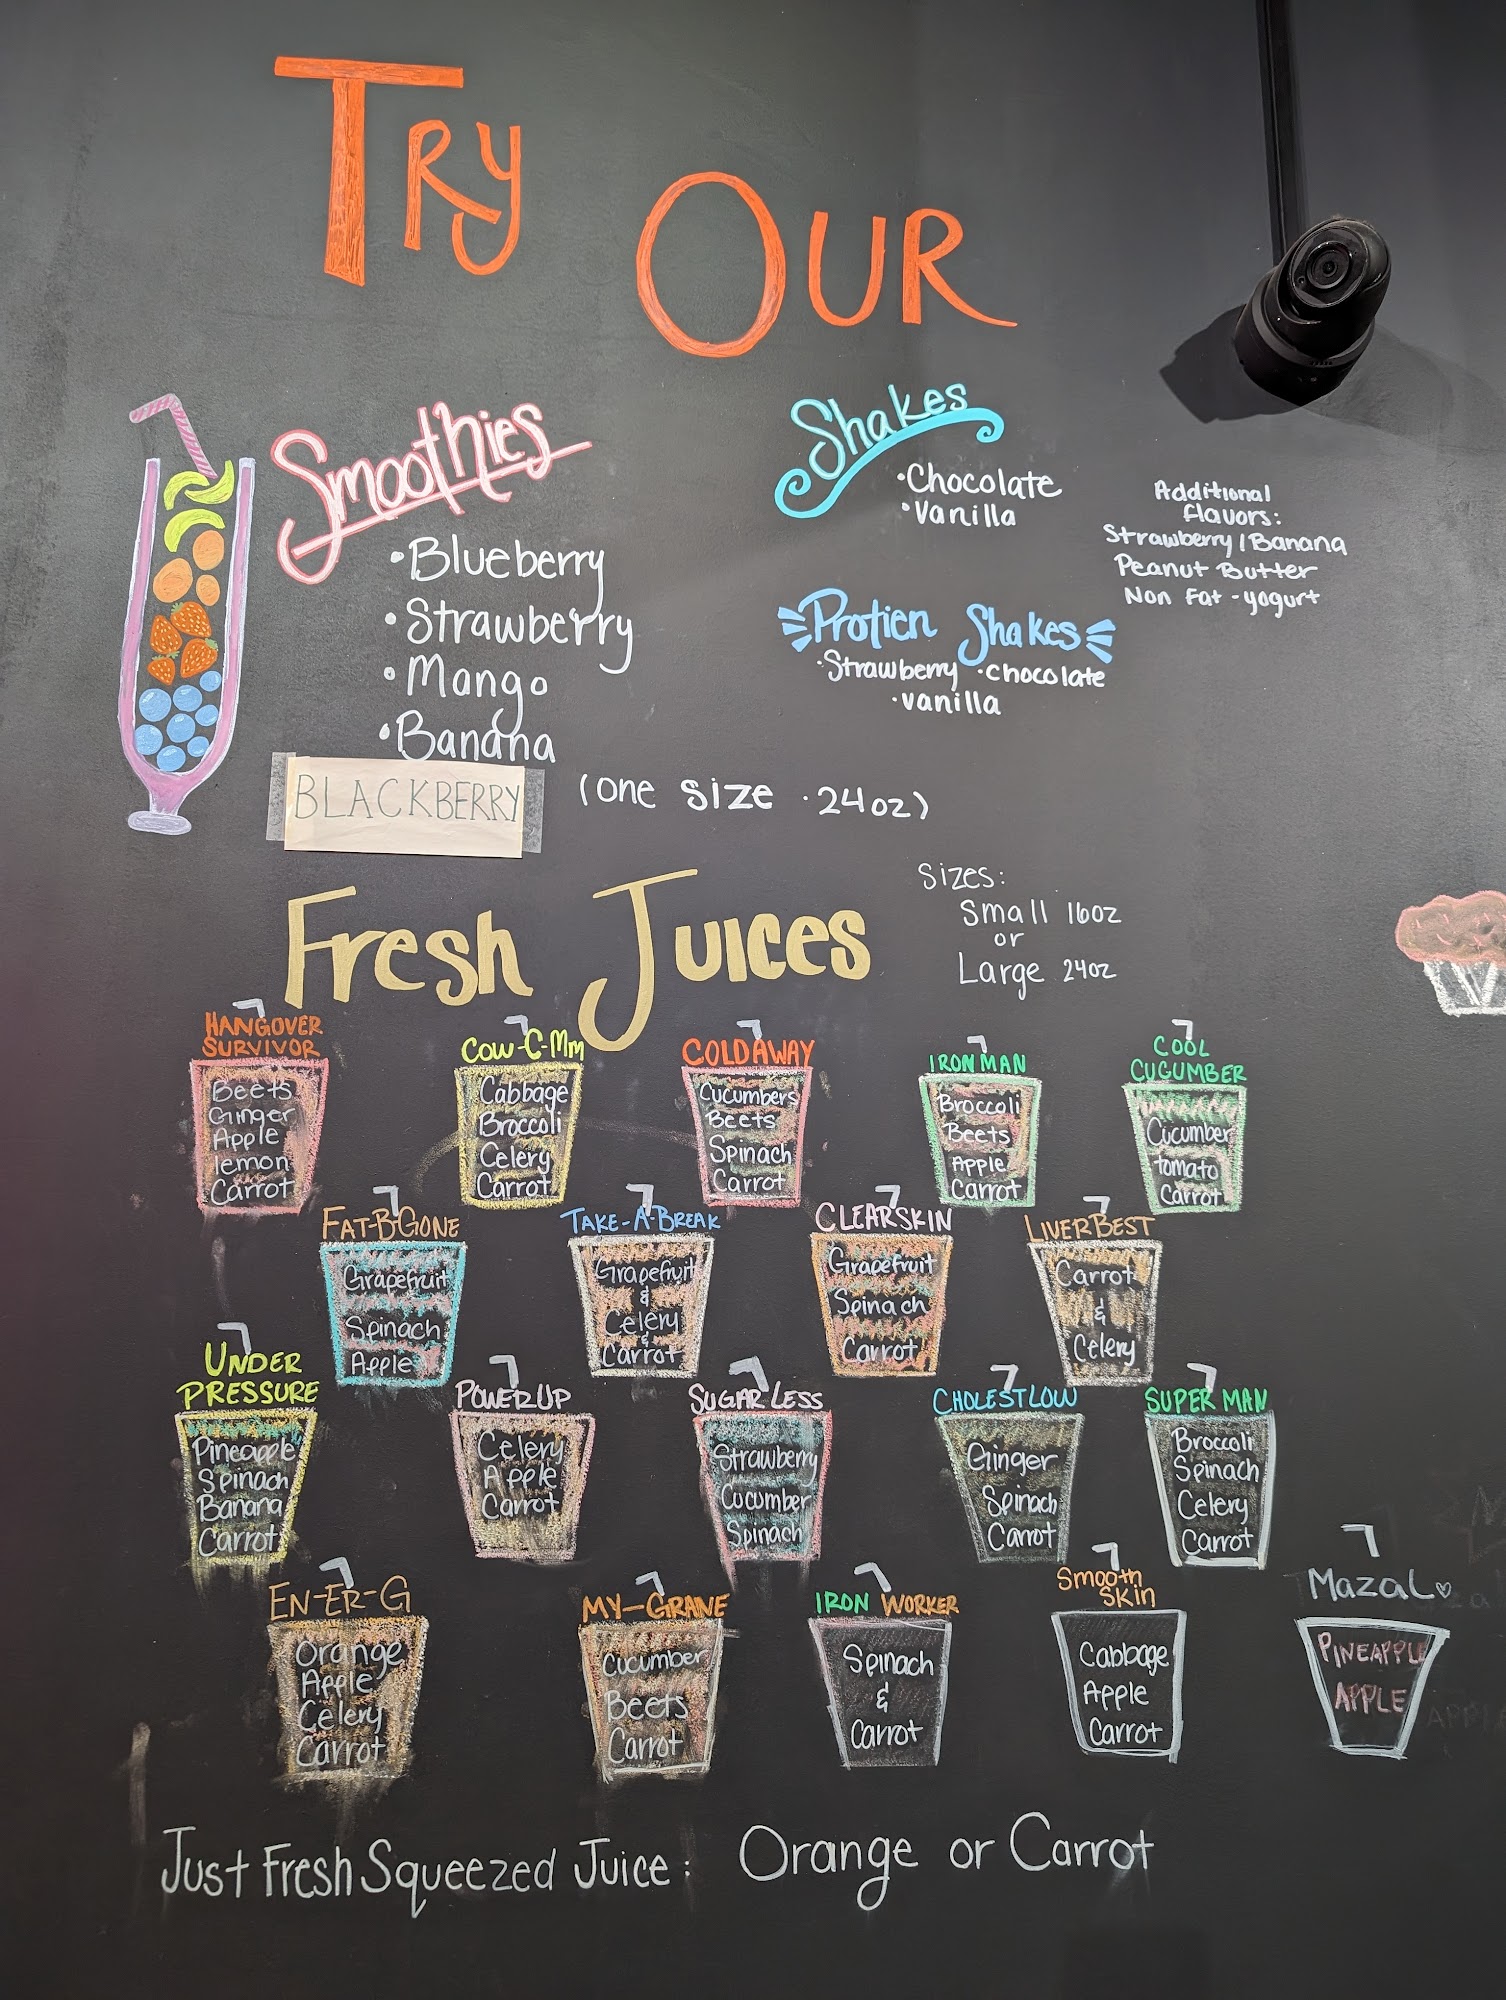 TRY
OUR
Smoothies
•Blueberry
•Strawberry
•Mango
•Banana
BLACKBERRY
(one size .24oz)
Shakes
•Chocolate
•Vanilla
Additional
flavors:
Strawberry/Banana
Peanut Butter
Non Fat -yogurt
Protien Shakes
•Strawberry •chocolate
•vanilla
Fresh Juices
Sizes:
Small 16oz
or
Large 24oz
HANGOVER
SURVIVOR
Beets
Ginger
Apple
lemon
Carrot
COW-C-Mm
Cabbage
Broccoli
Celery
Carrot
COLDAWAY
Cucumbers
Beets
Spinach
Carrot
IRON MAN
Broccoli
Beets
Apple
Carrot
COOL
CUCUMBER
Cucumber
tomato
Carrot
FAT-B-GONE
Grapefruit
Spinach
Apple
TAKE-A-BREAK
Grapefruit
&
Celery
&
Carrot
CLEARSKIN
Grapefruit
Spinach
Carrot
LIVERBEST
Carrot
&
Celery
UNDER
PRESSURE
Pineapple
Spinach
Banana
Carrot
POWERUP
Celery
Apple
Carrot
SUGAR LESS
Strawberry
Cucumber
Spinach
CHOLESTLOW
Ginger
Spinach
Carrot
SUPER MAN
Broccoli
Spinach
Celery
Carrot
EN-ER-G
Orange
Apple
Celery
Carrot
MY-GRAINE
Cucumber
Beets
Carrot
IRON WORKER
Spinach
&
Carrot
Smooth
SKIN
Cabbage
Apple
Carrot
MAZAL♡
PINEAPPLE
APPLE
Just Fresh Squeezed Juice: Orange or Carrot